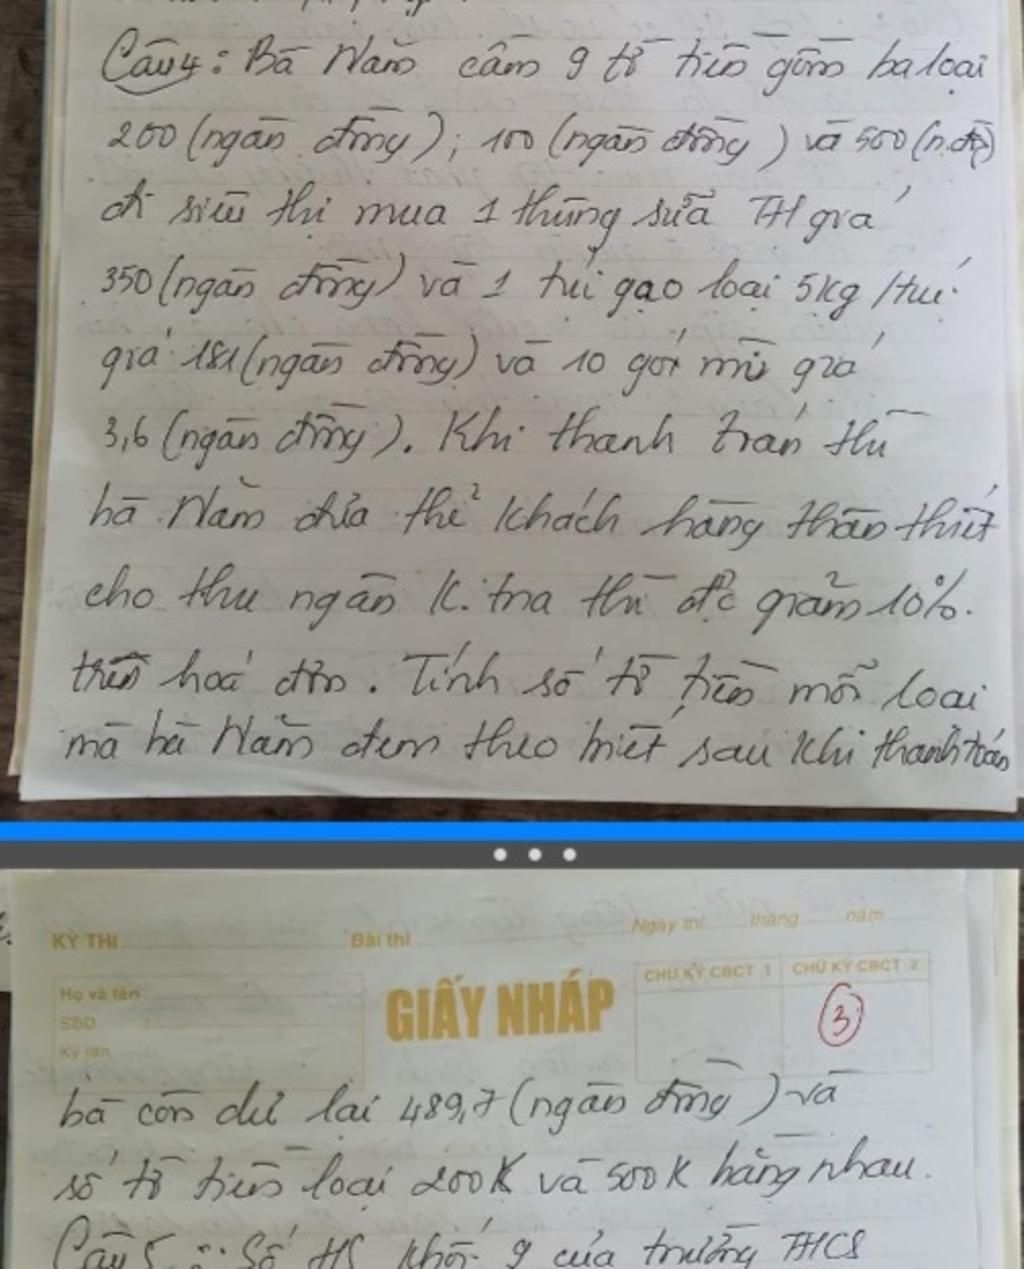 Câu 4: Bà Năm cầm 9 tờ tiền gồm ba loại
200 (ngàn đồng); 100 (ngàn đồng) và 500 (n.đồ)
đi siêu thị mua 1 thùng sữa TH giá
350 (ngàn đồng) và 1 túi gạo loại 5kg/túi
giá 181 (ngàn đồng) và 10 gói mì giá
3,6 (ngàn đồng). Khi thanh toán thì
bà Năm đưa thẻ khách hàng thân thiết
cho thu ngân k. tra thì đc giảm 10%.
trên hoá đơn. Tính số tờ tiền mỗi loại
mà bà Năm đem theo biết sau khi thanh toán
KỲ THI Bài thi Ngày thi tháng năm
Họ và tên :
SBD :
Ký tên
GIẤY NHÁP
CHỮ KÝ CBCT 1 CHỮ KÝ CBCT 2
3
bà còn dư lại 489,7 (ngàn đồng) và
số tờ tiền loại 200K và 500K bằng nhau.
Câu 5 : Số HS khối 9 của trường THCS